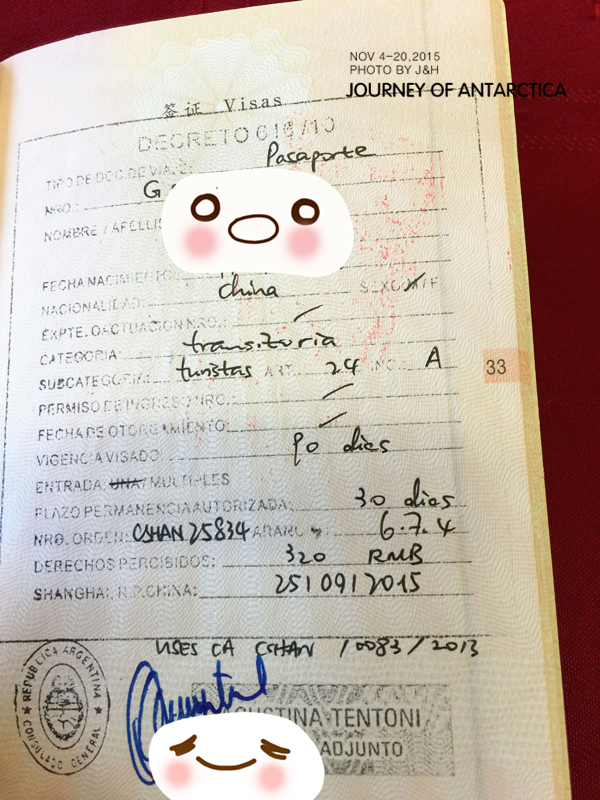 NOV 4-20,2015
PHOTO BY J&H
JOURNEY OF ANTARCTICA
签证 Visas
DECRETO 616/10
TIPO DE DOC. DE VIAJE: Pasaporte
NRO.: G
NOMBRE / APELLI
FECHA NACIMIENTO:
NACIONALIDAD: China SEXO: M/F
EXPTE. O ACTUACION NRO.:
CATEGORIA: transitoria
SUBCATEGORIA: turistas ART. 24 INC. A
PERMISO DE INGRESO NRO.:
FECHA DE OTORGAMIENTO:
VIGENCIA VISADO: 90 dias
ENTRADA: UNA / MULTIPLES
PLAZO PERMANENCIA AUTORIZADA: 30 dias
NRO. ORDEN: CSHAN 25834 ARANC 6.7.4
DERECHOS PERCIBIDOS: 320 RMB
SHANGHAI, R.P.CHINA: 25/09/2015
33
USES CA CSHAN /0083/2013
REPUBLICA ARGENTINA
CONSULADO GENERAL
AGUSTINA TENTONI
ADJUNTO